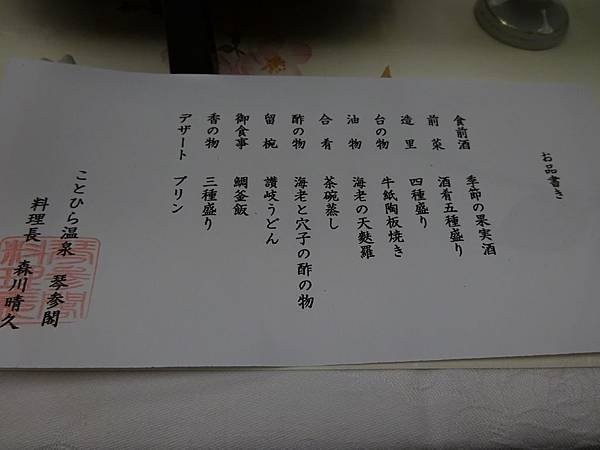 お品書き
食前酒 季節の果実酒
前菜 酒肴五種盛り
造里 四種盛り
台の物 牛紙陶板焼き
油物 海老の天麩羅
合肴 茶碗蒸し
酢の物 海老と穴子の酢の物
留椀 讃岐うどん
御食事 鯛釜飯
香の物 三種盛り
デザート プリン
ことひら温泉 琴参閣
料理長 森川晴久
琴参閣
料理長